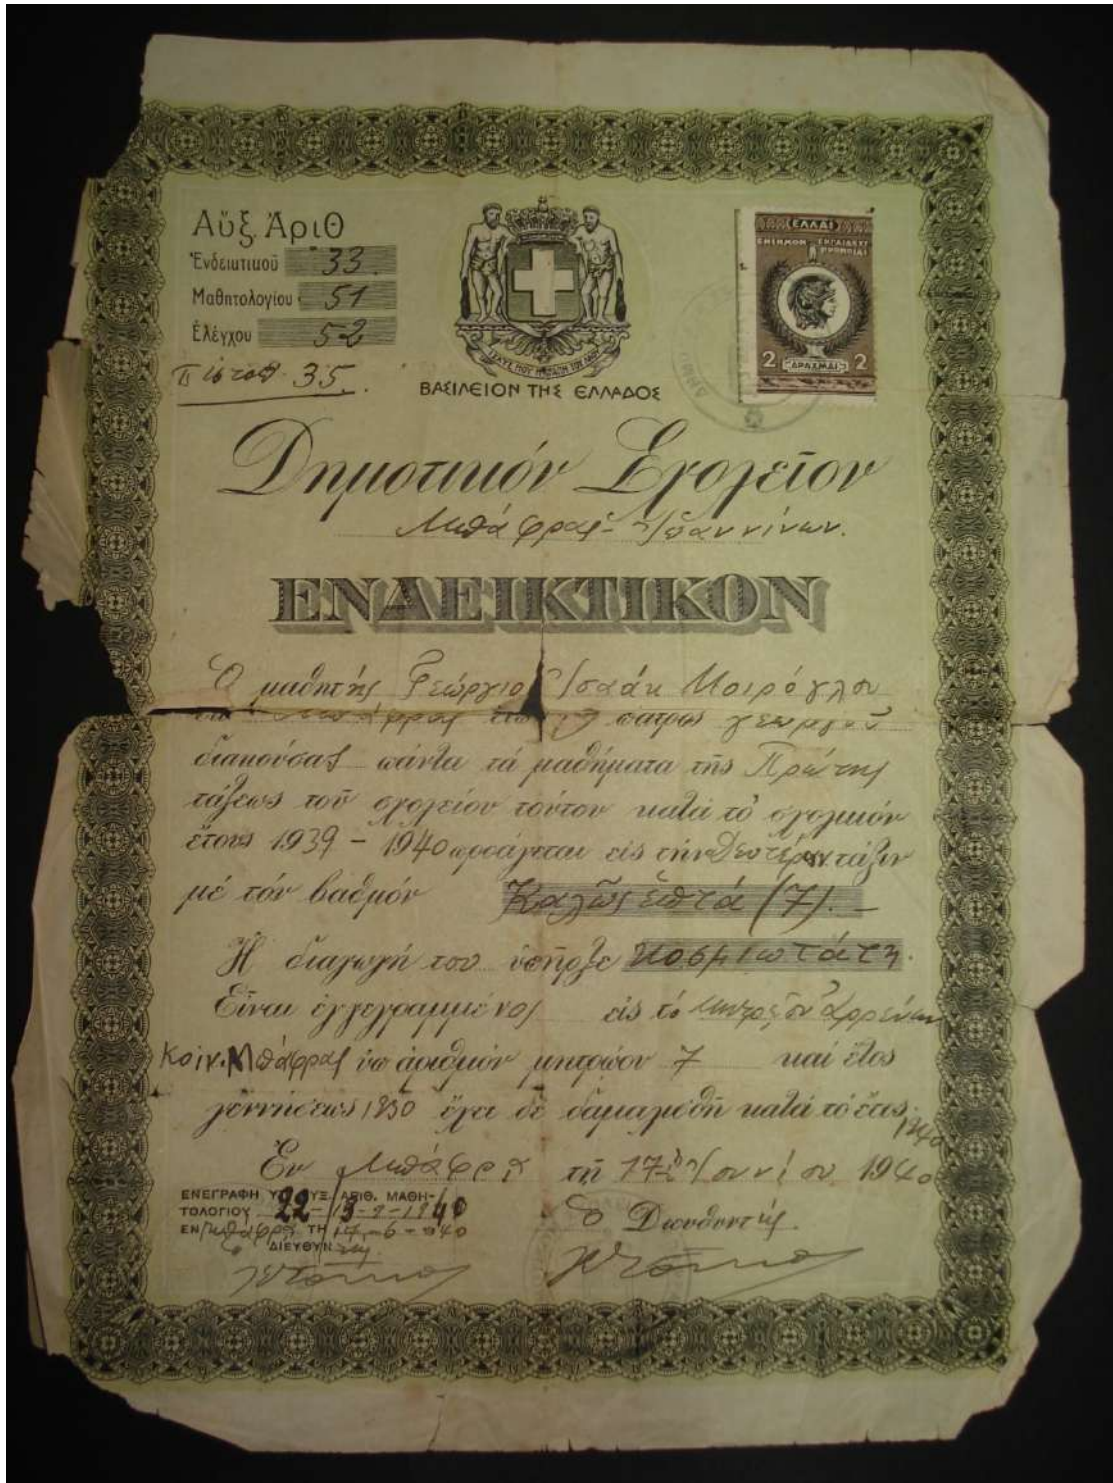 Αὔξ. Ἀριθ
Ἐνδεικτικοῦ 33.
Μαθητολογίου 51
Ἐλέγχου 52
35.
ΒΑΣΙΛΕΙΟΝ ΤΗΣ ΕΛΛΑΔΟΣ
ΕΛΛΑΣ
2 ΔΡΑΧΜΑΙ 2
Δημοτικόν Σχολεῖον
Μπάφρας Ἰωαννίνων.
ΕΝΔΕΙΚΤΙΚΟΝ
Ὁ μαθητής Γεώργιο Ἰσαάκ Μοιρόγλου
πατρός γεωργοῦ
διακούσας πάντα τά μαθήματα τῆς Πρώτης
τάξεως τοῦ σχολείου τούτου κατά τό σχολικόν
ἔτους 1939 - 1940 προάγεται εἰς τήν Δευτέραν τάξιν
μέ τόν βαθμόν Καλῶς ἑπτά (7).
Ἡ διαγωγή του ὑπῆρξε Κοσμιωτάτη.
Εἶναι ἐγγεγραμμένος εἰς τό Μητρῶον Ἀρρένων
Κοιν. Μπάφρας ὑπ ἀριθμόν μητρώου 7 καί ἔτος
γεννήσεως 1930 ἔχει δέ δαμαλισθῆ κατά τό ἔτος 1940
Ἐν Μπάφρᾳ τῇ 17ῃ Ἰουνίου 1940
ΕΝΕΓΡΑΦΗ ΑΡΙΘ. ΜΑΘΗ-
ΤΟΛΟΓΙΟΥ 22-13-9-1940
ΕΝ Μπάφρᾳ ΤΗ 17-6-940
ΔΙΕΥΘΥΝ
Ὁ Διευθυντής.